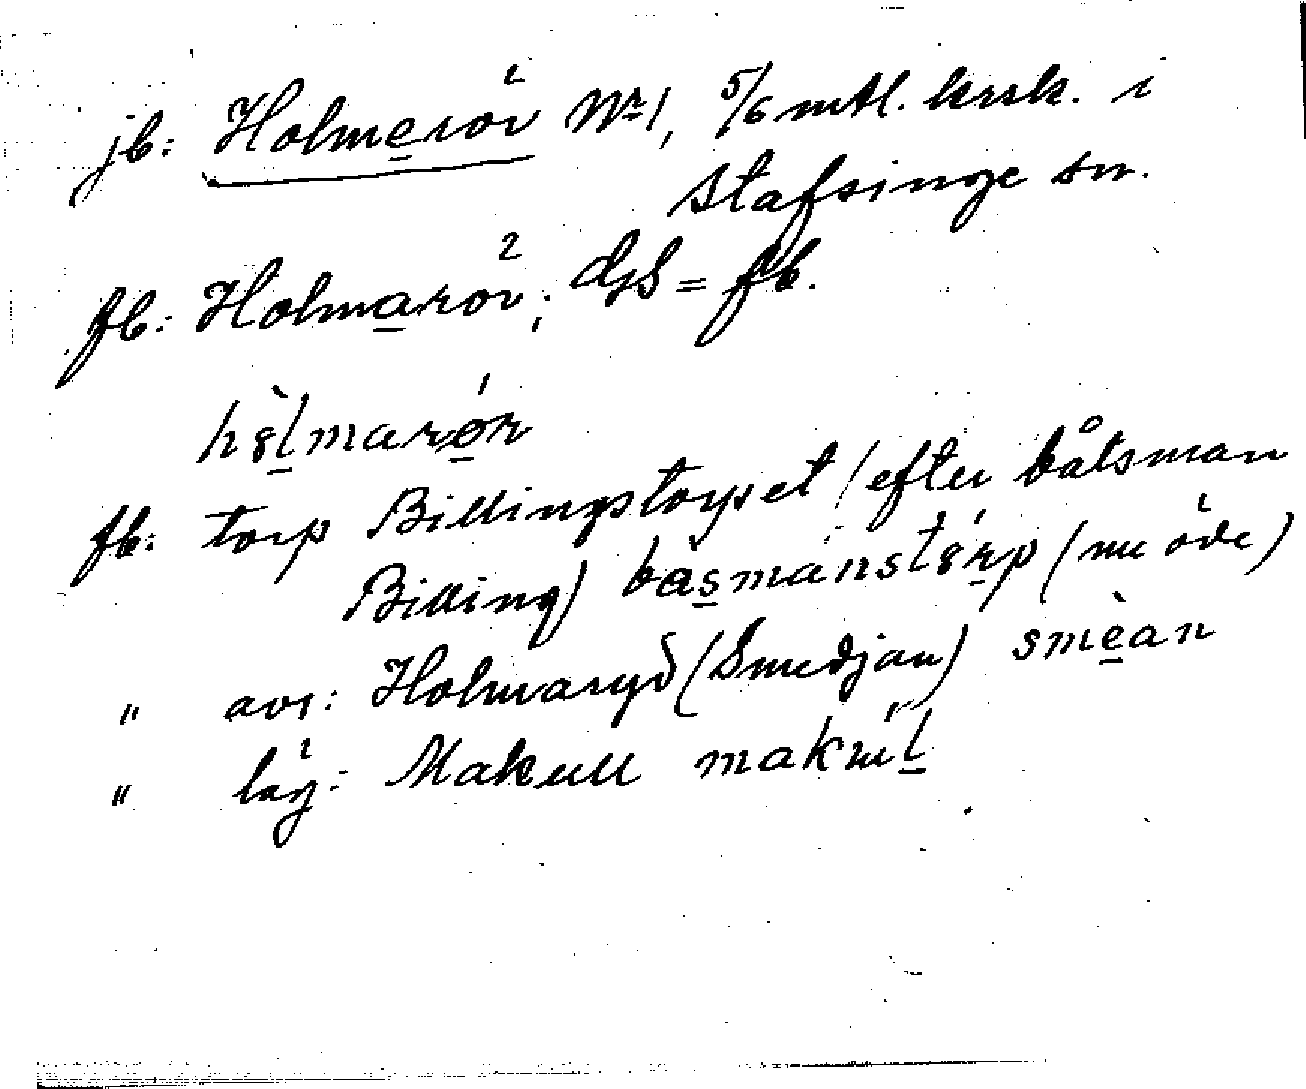 jb: Holmeröv Nr 1, 5/6 mtl. krsk. i
Stafsinge sn.
fb: Holmaröv; djS = fb.
hòlmarør
fb: torp Billingstorpet (efter båtsman
Billing) båsmanstorp (nu öde)
" avs: Holmaryd (Smedjan) smèan
" läg: Makull makul